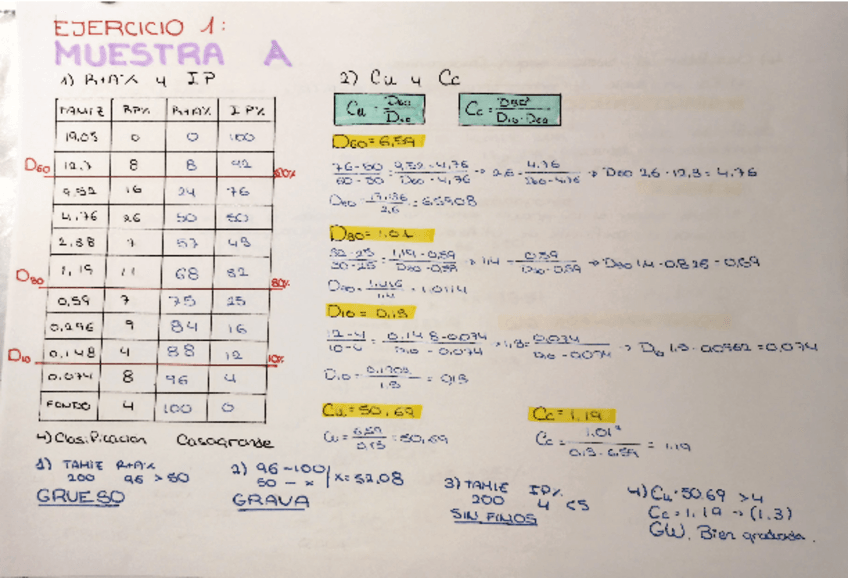 EJERCICIO 1:
MUESTRA A
1) R+A% y IP
TAMIZ RP% R+A% IP%
19,05 0 0 100
D60 12,7 8 8 92
60%
9,52 16 24 76
4,76 26 50 50
2,38 7 57 43
1,19 11 68 32
D30 30%
0,59 7 75 25
0,296 9 84 16
0,148 4 88 12
D10 10%
0,074 8 96 4
FONDO 4 100 0
2) Cu y Cc
Cu = D60/D10 Cc = D30²/D10·D60
D60 = 6,59
76-50/60-50 = 9,52-4,76/D60-4,76 → 2,6 = 4,76/D60-4,76 → D60 2,6 - 12,3 = 4,76
D60 = /2,6 = 6,5908
D30 = 1,01
32-25/30-25 = 1,19-0,59/D30-0,59 → 1,4 = 0,59/D30-0,59 → D30 1,4 - 0,826 = 0,59
D30 = 1,416/1,4 = 1,0114
D10 = 0,13
12-4/10-4 = 0,148-0,074/D10-0,074 → 1,3 = 0,074/D10-0,074 → D10 1,3 - 0,0962 = 0,074
D10 = 0,1702/1,3 = 0,13
Cu = 50,69 Cc = 1,19
Cu = 6,59/0,13 = 50,69
Cc = 1,01²/0,13·6,59 = 1,19
4) Clasificacion Casagrande
1) TAMIZ R+A%
200 96 > 50
GRUESO
2) 96-100
50 - x | x = 52,08
GRAVA
3) TAMIZ IP%
200 4 <5
SIN FINOS
4) Cu = 50,69 > 4
Cc = 1,19 → (1,3)
GW. Bien gradada.